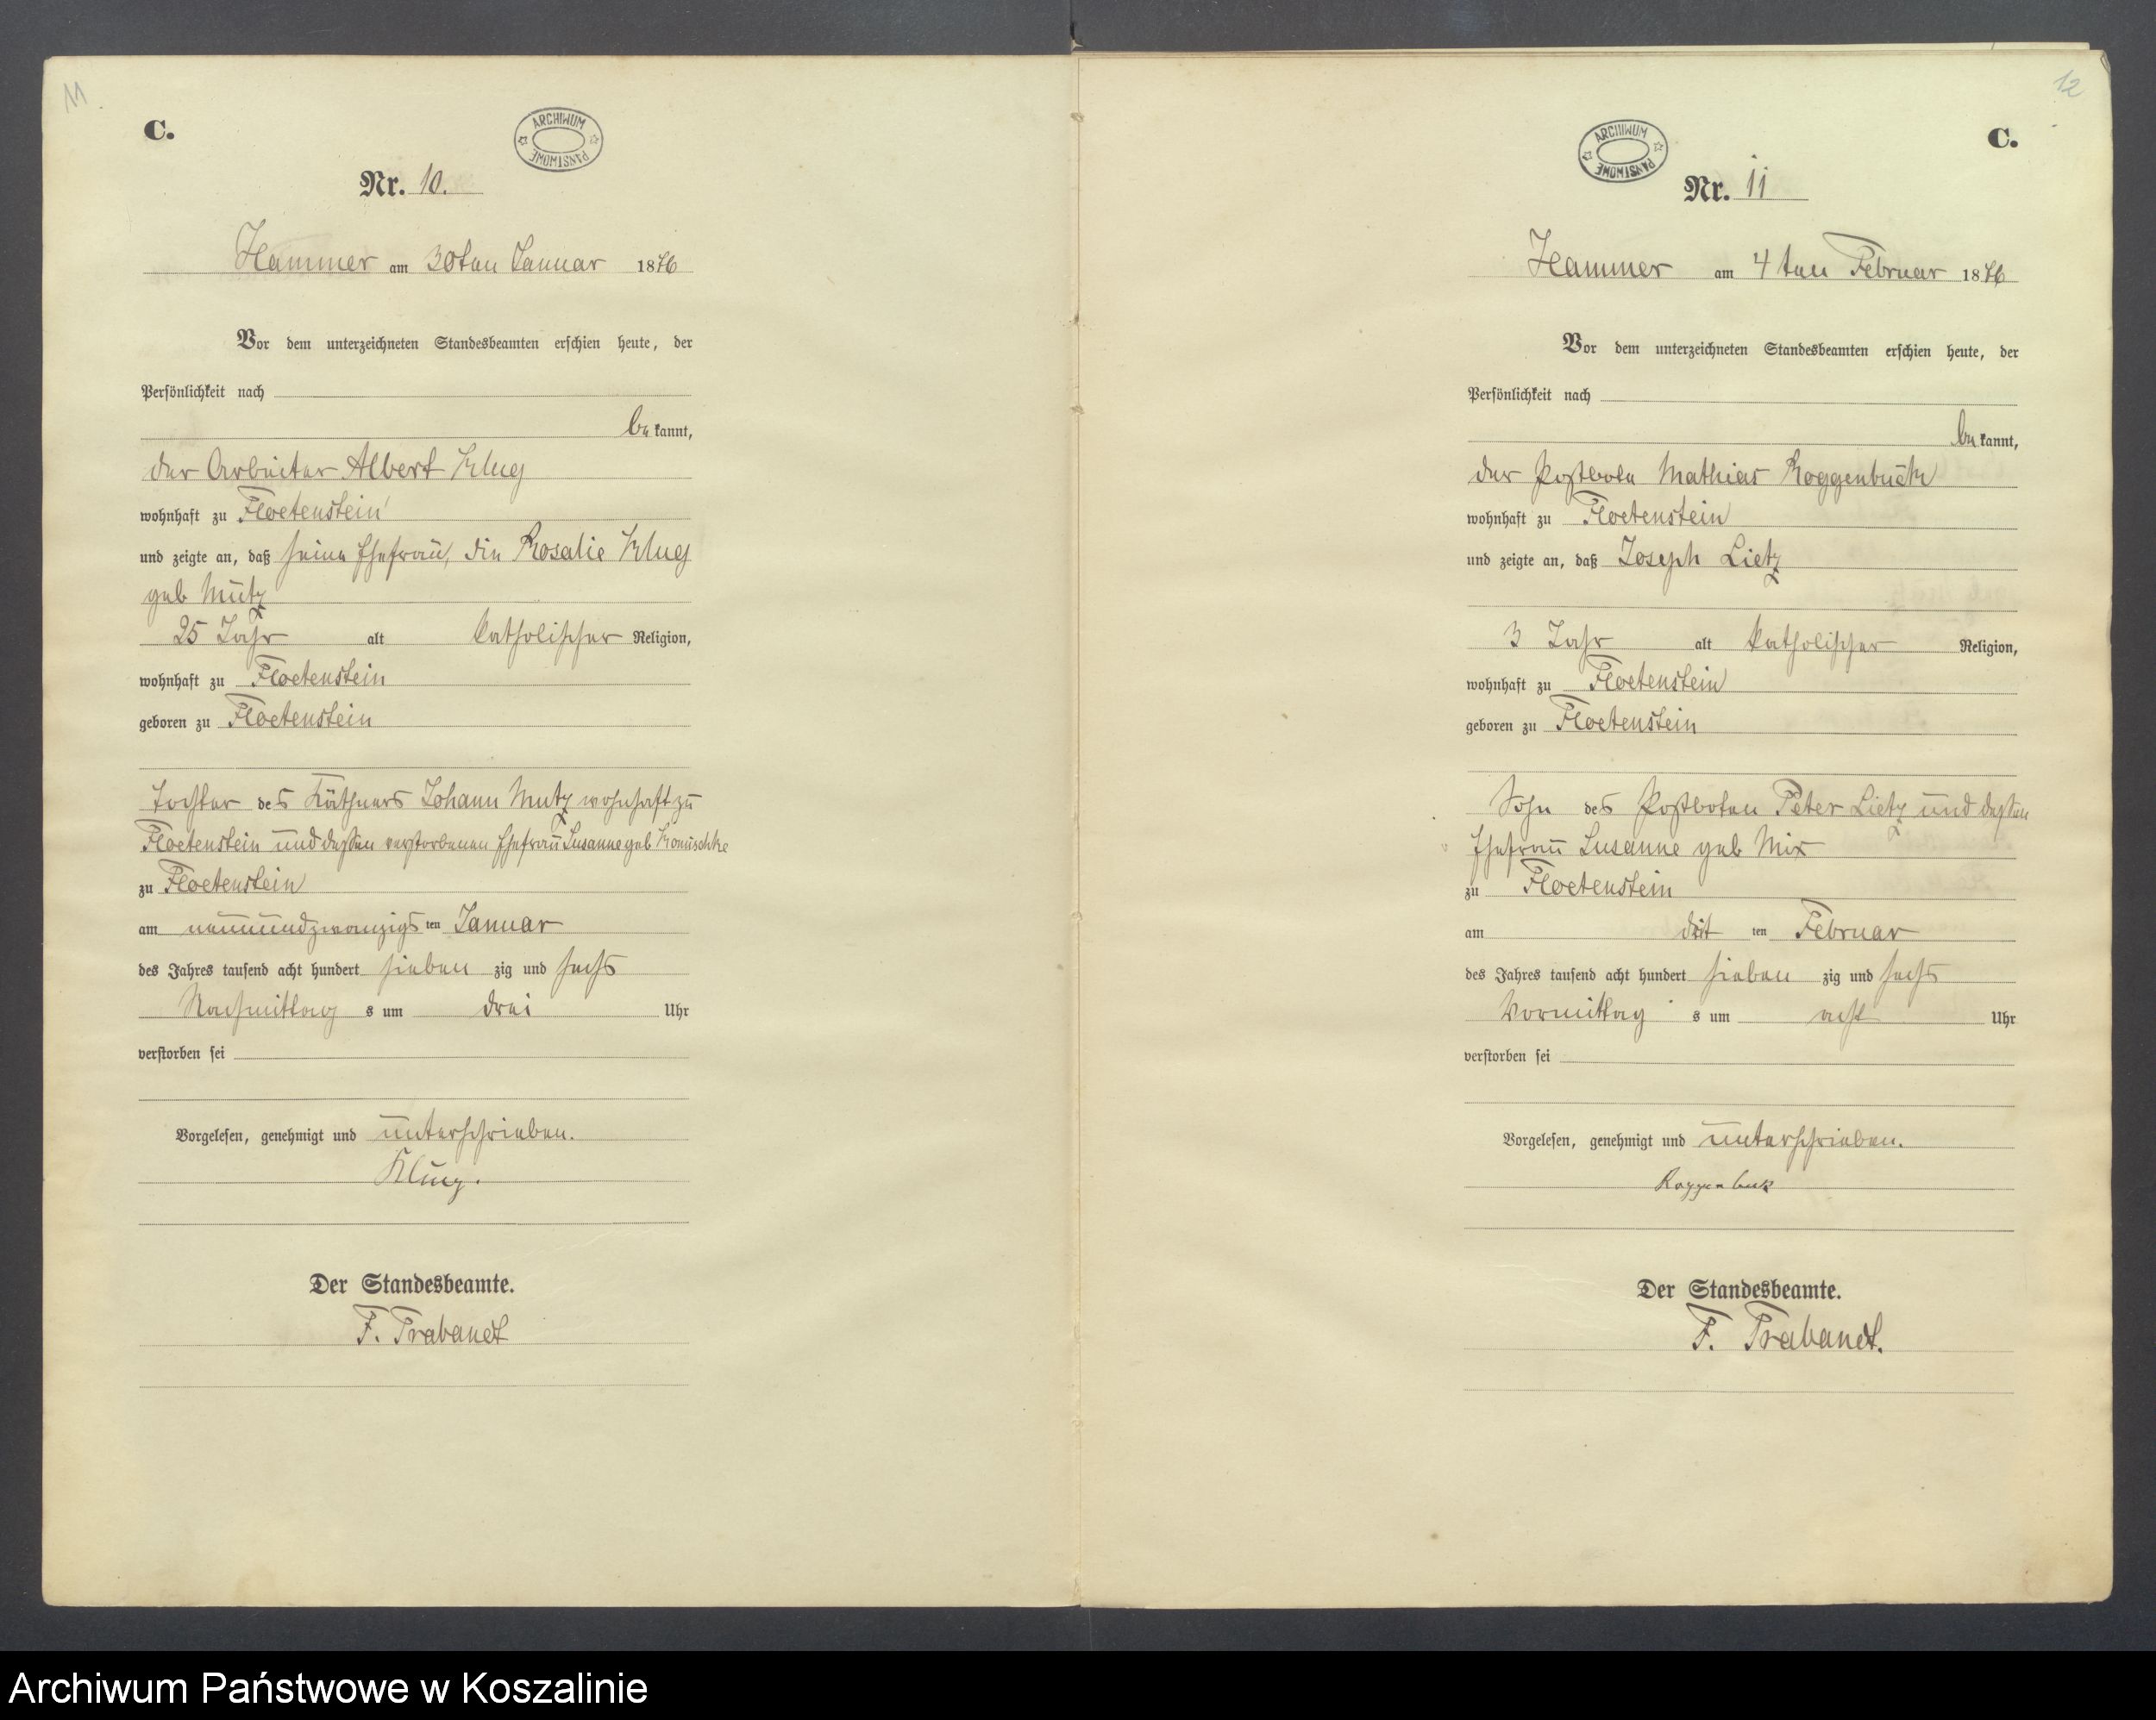 11
C.
ARCHIWUM PAŃSTWOWE
Nr. 10.
Hammer am 30ten Januar 1876
Vor dem unterzeichneten Standesbeamten erschien heute, der
Persönlichkeit nach
bekannt,
der Arbeiter Albert Klug
wohnhaft zu Floetenstein
und zeigte an, daß seine Ehefrau, die Rosalie Klug
geb Mutz
25 Jahr alt katholischer Religion,
wohnhaft zu Floetenstein
geboren zu Floetenstein
Tochter des Käthners Johann Mutz wohnhaft zu
Floetenstein und dessen verstorbenen Ehefrau Susanne geb
zu Floetenstein
am neunundzwanzigsten Januar
des Jahres tausend acht hundert siebenzig und sechs
Nachmittags um drei Uhr
verstorben sei
Vorgelesen, genehmigt und unterschrieben.
Klug.
Der Standesbeamte.
F. Trabandt
12
C.
ARCHIWUM PAŃSTWOWE
Nr. 11
Hammer am 4ten Februar 1876
Vor dem unterzeichneten Standesbeamten erschien heute, der
Persönlichkeit nach
bekannt,
der Postbote Mathias Roggenbuck
wohnhaft zu Floetenstein
und zeigte an, daß Joseph Lietz
3 Jahr alt katholischer Religion,
wohnhaft zu Floetenstein
geboren zu Floetenstein
Sohn des Postboten Peter Lietz und dessen
Ehefrau Susanne geb Mix
zu Floetenstein
am dritten Februar
des Jahres tausend acht hundert siebenzig und sechs
Vormittags um acht Uhr
verstorben sei
Vorgelesen, genehmigt und unterschrieben.
Roggenbuk
Der Standesbeamte.
F. Trabandt.
Archiwum Państwowe w Koszalinie